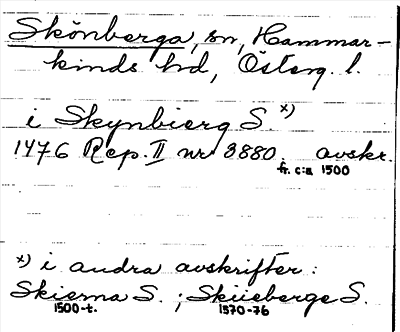 Skönberga, sn, Hammar-
kinds hd, Österg. l.
i Skynbierg S. x)
1476 Rep. II nr 3880. avskr.
fr. c:a 1500
x) i andra avskrifter:
Skierna S. ; Skieberge S.
1500-t. 1570-76